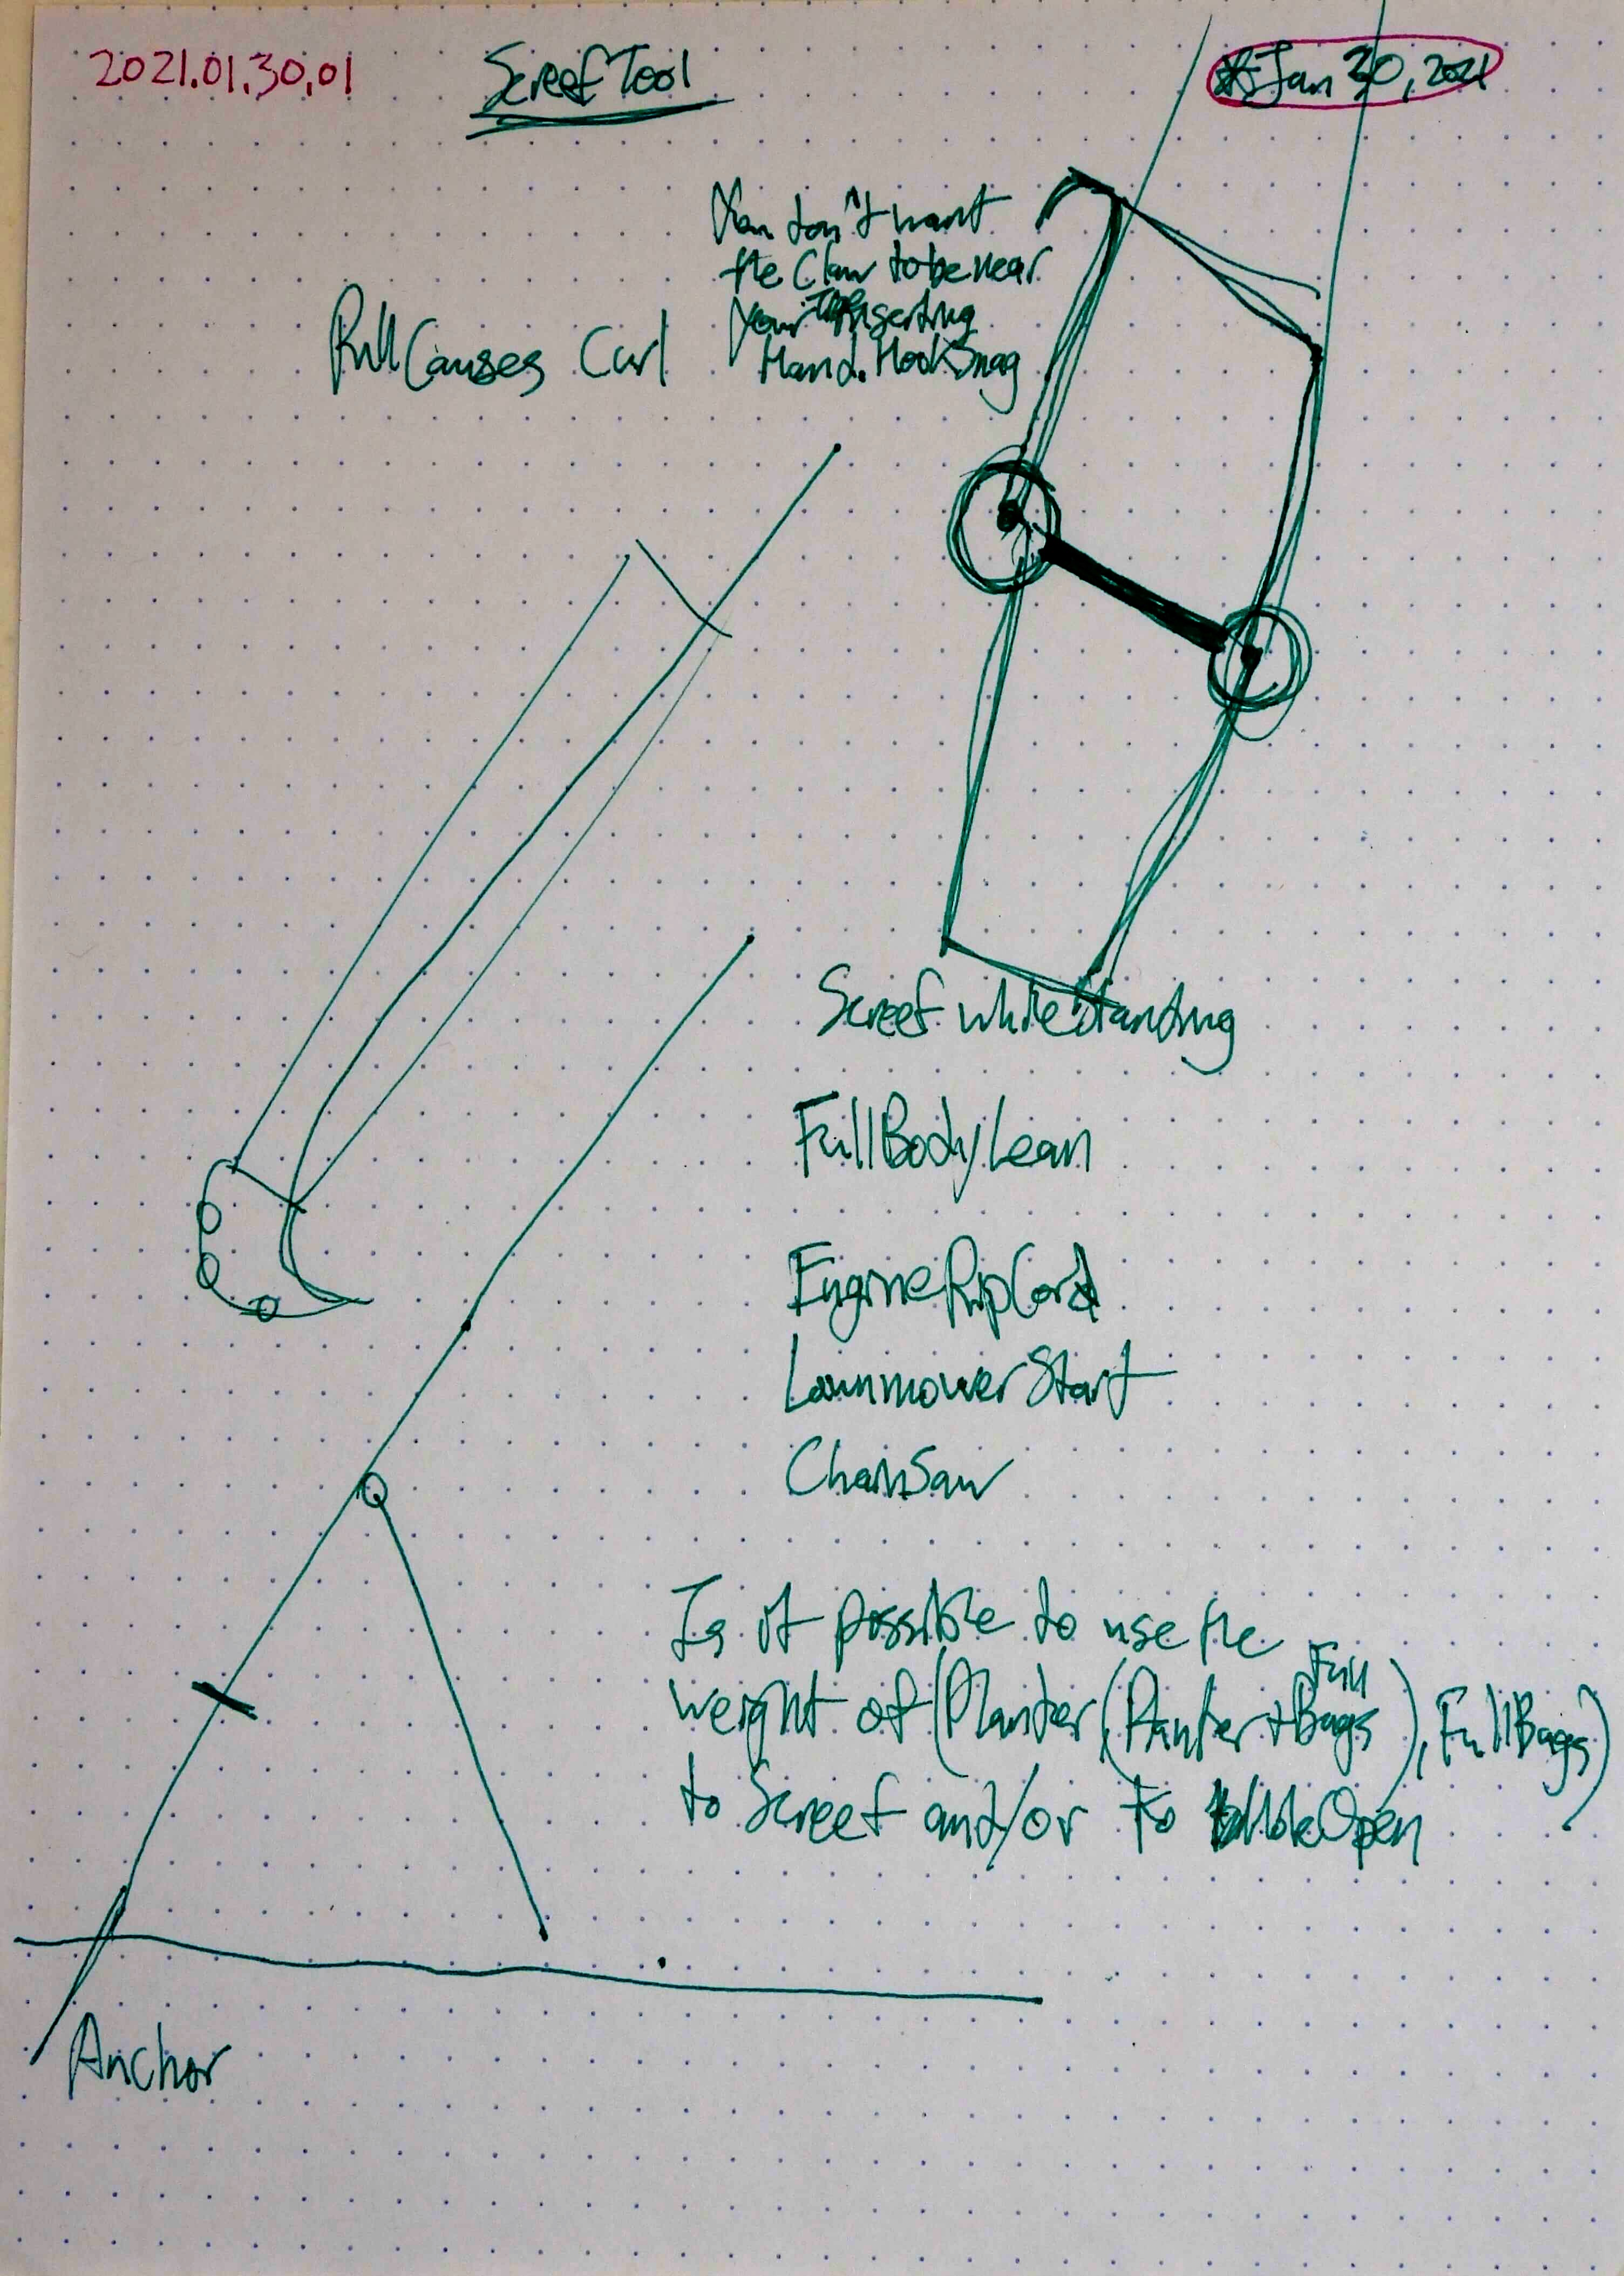 2021.01.30.01
Screef Tool
Jan 30, 2021
You don't want
the Claw to be near
Your Inserting
Hand. HookSnag
Pull Causes Curl
Screef while Standing
FullBodyLean
EngineRipCord
LawnmowerStart
ChainSaw
Is it possible to use the
weight of (Planter, (Planter + Full Bags), FullBags)
to Screef and/or to HoleOpen
Anchor